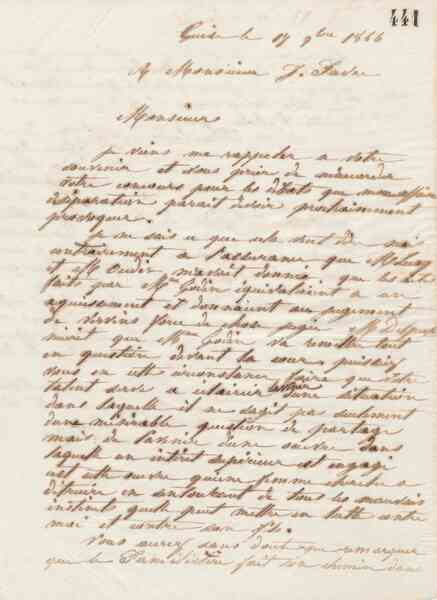 441
Guise le 17 9bre 1866
A Monsieur J. Favre
Monsieur
Je viens me rappeler a votre
souvenir et vous prier de m'accorder
votre concours pour les débats que mon affaire
séparation parait devoir prochainement
provoquer.
Je ne sais ce que cela vient de
contrairement a l'assurance que M
et M Oudin m'avait donnée que les actes
faits par Mme Godin équivalaient a un
aquiescement et donnaient au jugement
de Vervins force de chose jugée M
m'écrit que Mme Godin va remettre tout
en question devant la cour puissiez
vous en cette circonstance faire que votre
talent serve a éclairer la cour d'une situation
dans laquelle il ne sagit pas seulement
d'une misérable question de partage
mais de l'avenir d'une œuvre dans
laquelle un intérêt supérieur est engagé
est cette œuvre qu'une femme cherche a
détruire en sentourant de tous les mauvais
instincts quelle peut mettre en lutte contre
moi et contre son fils.
Vous aurez sans doute pu remarquer
que le Familistère fait son chemin dans